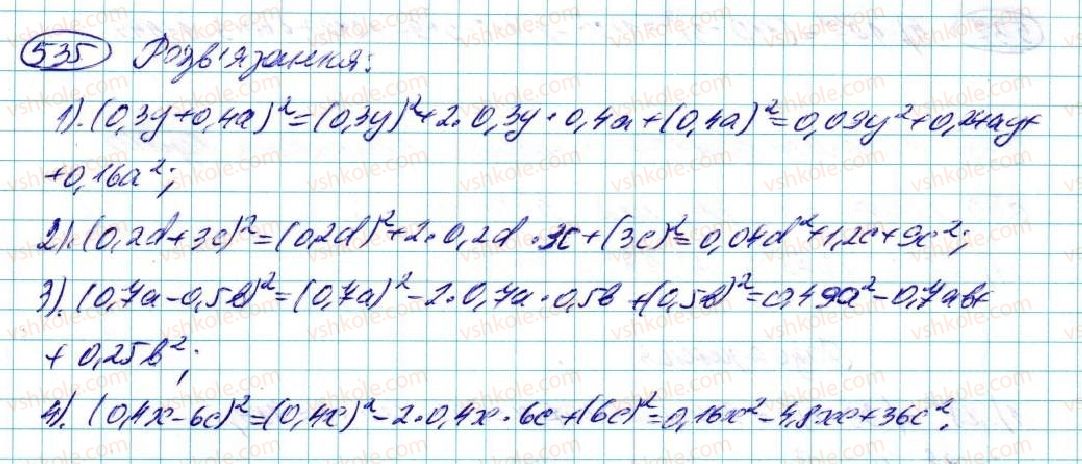 535 Розв'язання:
1). (0,3y+0,4a)²=(0,3y)²+2·0,3y·0,4a+(0,4a)²=0,09y²+0,24ay+
+0,16a²;
2). (0,2d+3c)²=(0,2d)²+2·0,2d·3c+(3c)²=0,04d²+1,2c+9c²;
3). (0,7a-0,5b)²=(0,7a)²-2·0,7a·0,5b+(0,5b)²=0,49a²-0,7ab+
+0,25b²;
4). (0,4x-6c)²=(0,4x)²-2·0,4x·6c+(6c)²=0,16x²-4,8xc+36c².